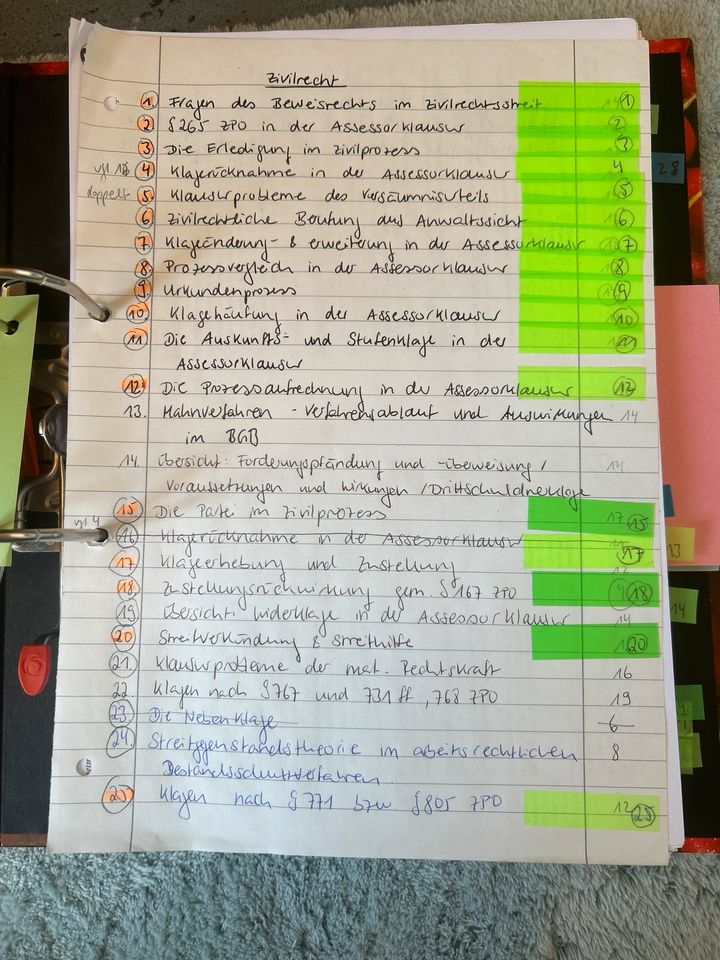 Zivilrecht
1. Fragen des Beweisrechts im Zivilrechtsstreit 14 1
2. § 265 ZPO in der Assessorklausur 2
3. Die Erledigung im Zivilprozess 3
vgl. 16 4. Klagerücknahme in der Assessorklausur 4
doppelt 5. Klausurprobleme des Versäumnisurteils 5
6. Zivilrechtliche Berufung aus Anwaltssicht 6
7. Klageänderung- & erweiterung in der Assessorklausur 7
8. Prozessvergleich in der Assessorklausur 8
9. Urkundenprozess 9
10. Klagehäufung in der Assessorklausur 10
11. Die Auskunfts- und Stufenklage in der 11
Assessorklausur
12. Die Prozessaufrechnung in der Assessorklausur 12
13. Mahnverfahren - Verfahrensablauf und Auswirkungen 14
im BGB
14. Übersicht: Forderungspfändung und -überweisung /
Voraussetzungen und Wirkungen / Drittschuldnerklage
15. Die Partei im Zivilprozess 17 15
vgl. 4 16. Klagerücknahme in der Assessorklausur
17. Klageerhebung und Zustellung 17
18. Zustellungsrückwirkung gem. § 167 ZPO 18
19. Übersicht: Widerklage in der Assessorklausur 14
20. Streitverkündung & Streithilfe 20
21. Klausurprobleme der mat. Rechtskraft 16
22. Klagen nach § 767 und 731 ff, 768 ZPO 19
23. Die Nebenklage 6
24. Streitgegenstandstheorie im arbeitsrechtlichen 8
Bestandsschutzverfahren.
25. Klagen nach § 771 bzw § 805 ZPO 12 25
28
13
14